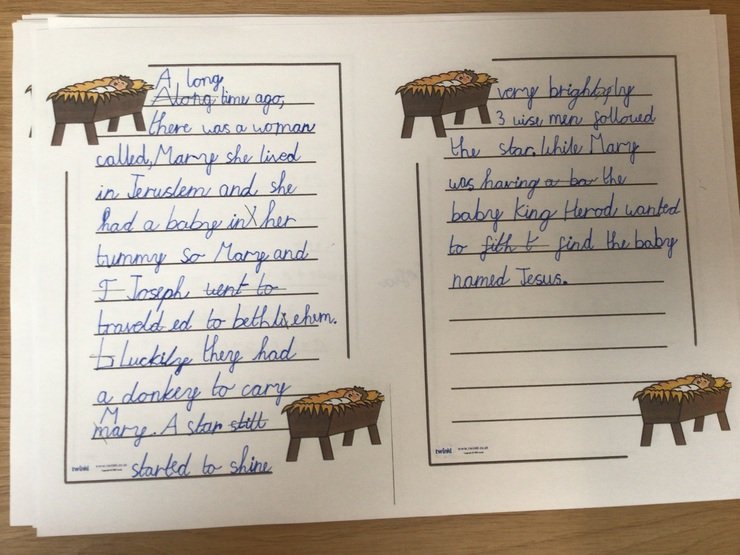 A long
Along time ago,
there was a woman
called, Mary she lived
in Jeruslem and she
had a baby in her
tummy so Mary and
J Joseph went to
traveld ed to bethliehem.
L Luckily they had
a donkey to cary
Mary. A star still
started to shine
twinkl www.twinkl.co.uk
very brightly
3 wise men followed
the star. While Mary
was having a ba the
baby King Herod wanted
to fith t find the baby
named Jesus.
twinkl www.twinkl.co.uk